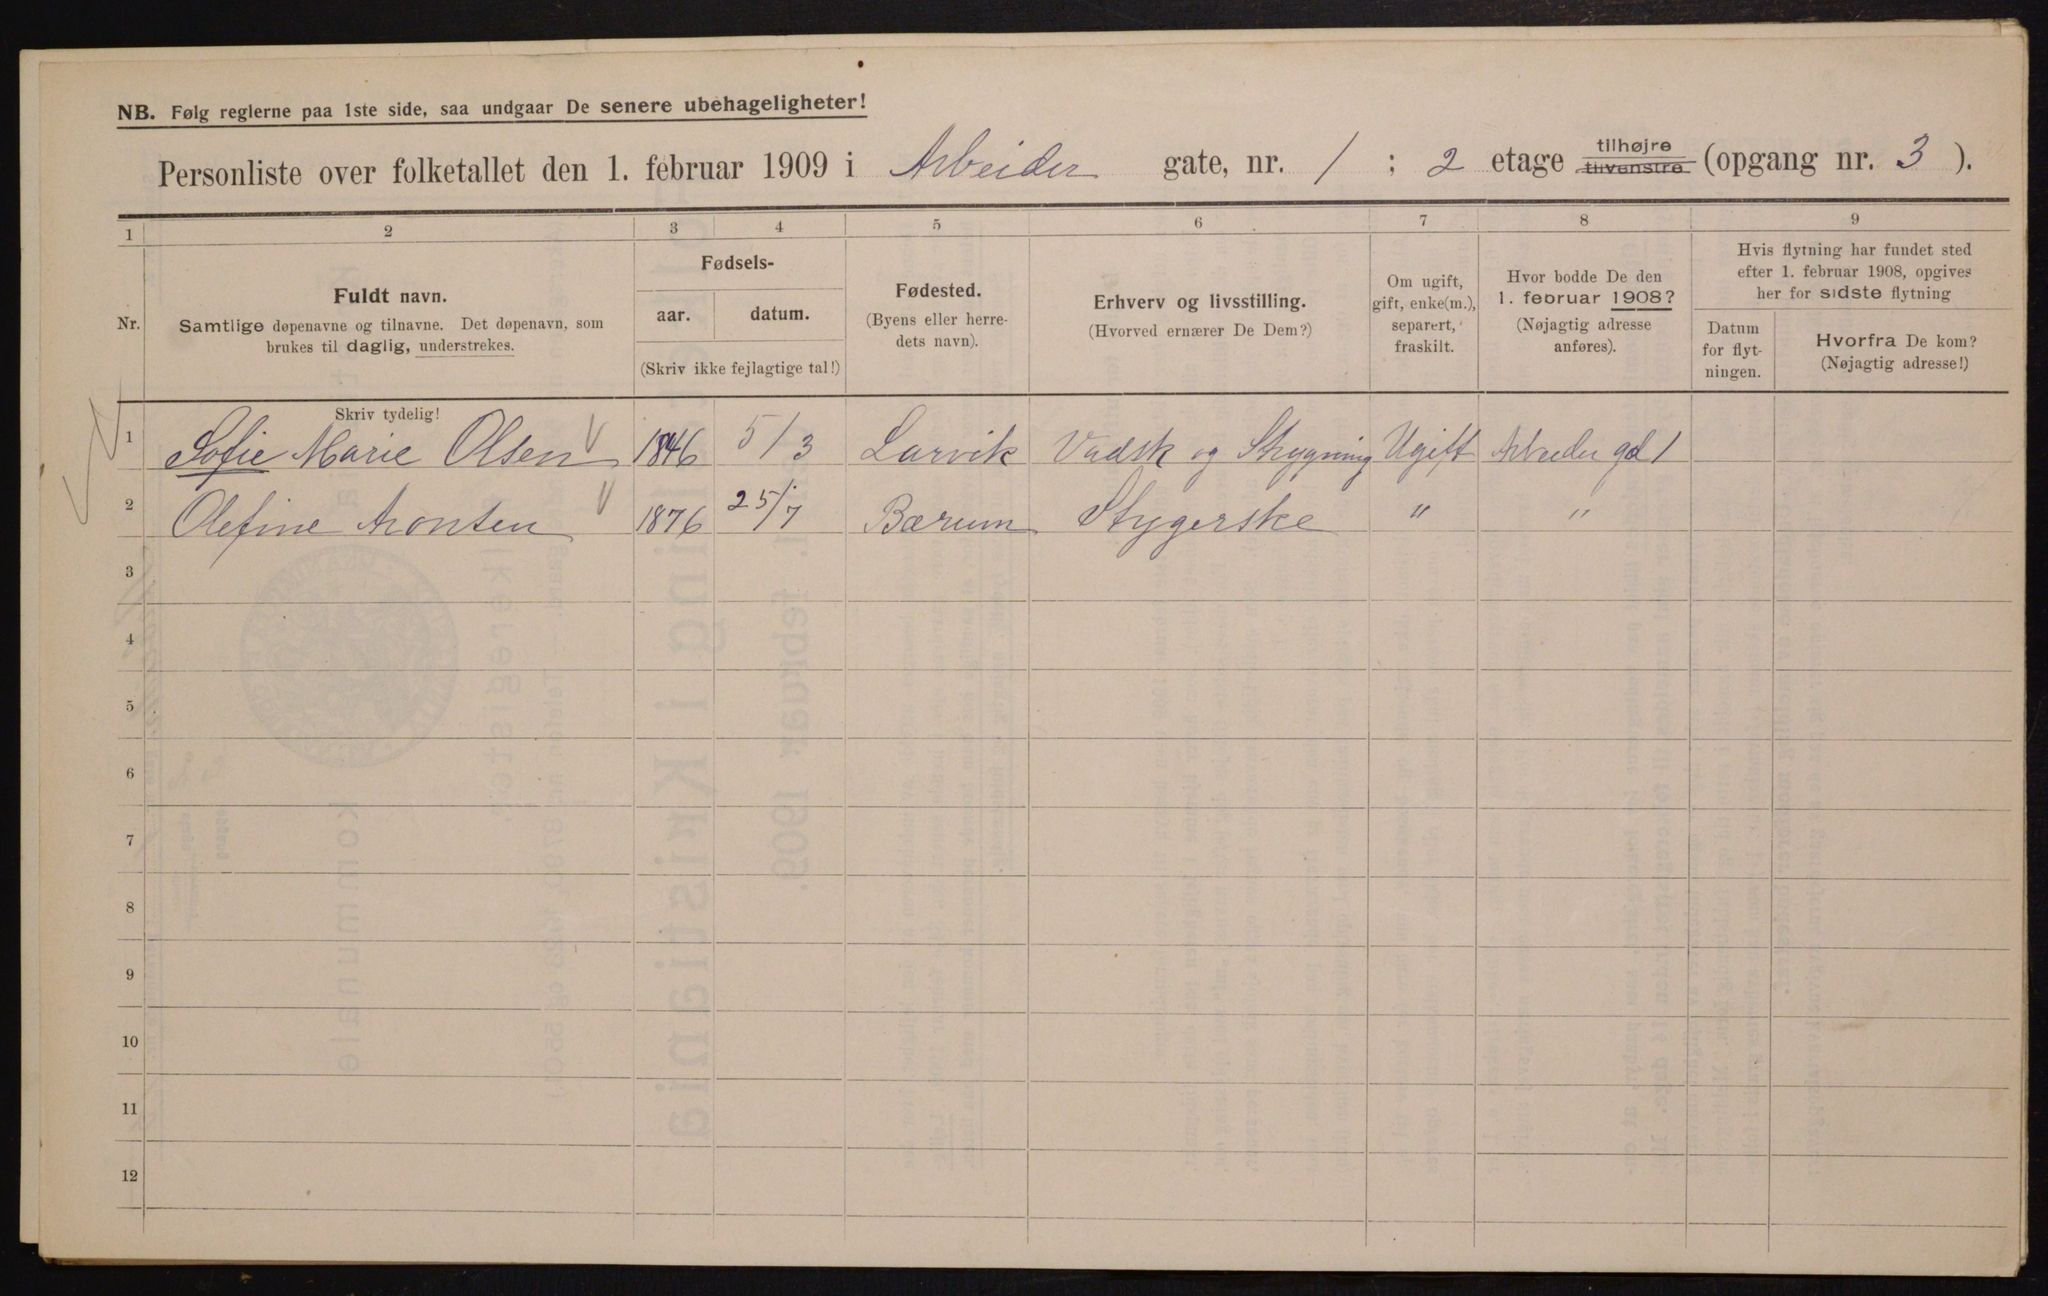 NB. Følg reglerne paa 1ste side, saa undgaar De senere ubehageligheter!
Personliste over folketallet den 1. februar 1909 i Arbeider gate, nr. 1 ; 2 etage tilhøjre tilvenstre (opgang nr. 3 ).
1 2 3 4 5 6 7 8 9
Nr.
Fuldt navn.
Samtlige døpenavne og tilnavne. Det døpenavn, som
brukes til daglig, understrekes.
Fødsels-
aar. datum.
(Skriv ikke fejlagtige tal!)
Fødested.
(Byens eller herre-
dets navn).
Erhverv og livsstilling.
(Hvorved ernærer De Dem?)
Om ugift,
gift, enke(m.),
separert,
fraskilt.
Hvor bodde De den
1. februar 1908?
(Nøjagtig adresse
anføres).
Hvis flytning har fundet sted
efter 1. februar 1908, opgives
her for sidste flytning
Datum
for flyt-
ningen.
Hvorfra De kom?
(Nøjagtig adresse!)
Skriv tydelig!
1 Sofie Marie Olsen 1846 5/3 Larvik Vadsk og Strygning Ugift Arbeider gd 1
2 Olefine Aronsen 1876 25/7 Bærum Stygerske " "
3
4
5
6
7
8
9
10
11
12